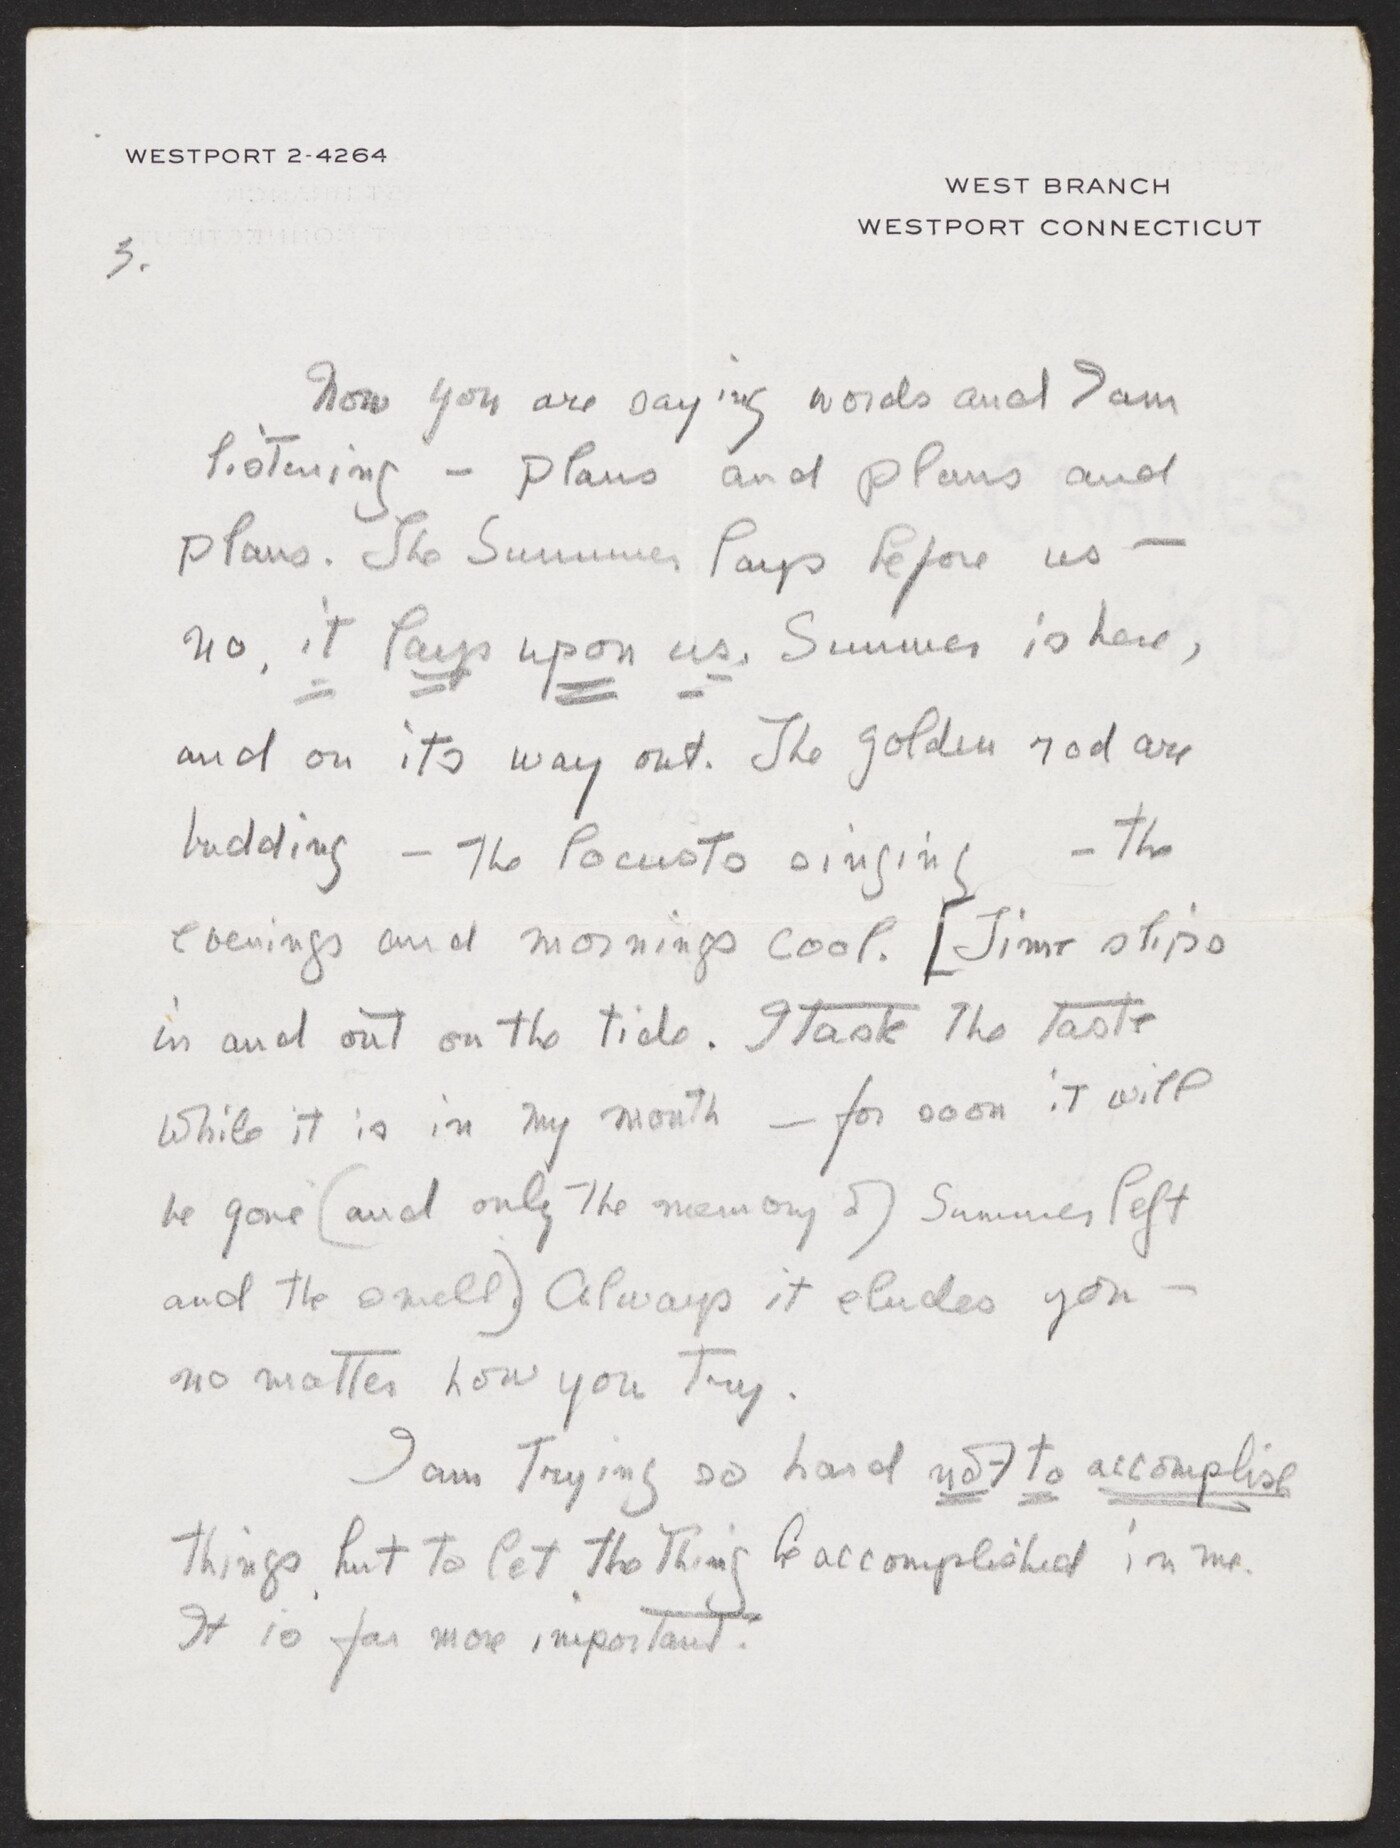 WESTPORT 2-4264
WEST BRANCH
WESTPORT CONNECTICUT
3.
Now you are saying words and I am
listening – plans and plans and
plans. The Summer lays before us –
no, it lays upon us. Summer is here,
and on its way out. The golden rod are
budding – the locusts singing – the
evenings and mornings cool. [Time slips
in and out on the tide. I taste the taste
while it is in my mouth – for soon it will
be gone (and only the memory of) Summer left
and the smell) Always it eludes you –
no matter how you try.
I am trying so hard not to accomplish
things, but to let the thing be accomplished in me.
It is far more important.